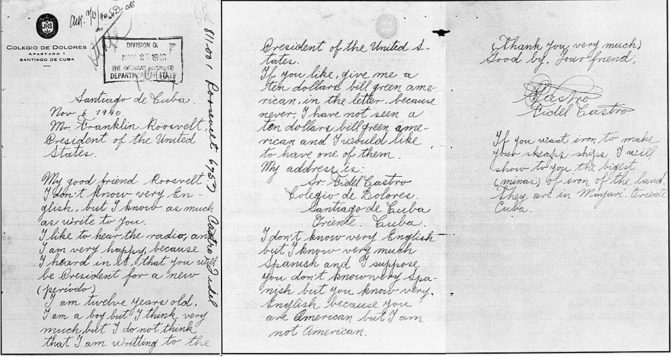 COLEGIO DE DOLORES
APARTADO 1
SANTIAGO DE CUBA
DIVISION OF
NOV 27 1940
THE AMERICAN REPUBLICS
DEPARTMENT OF STATE
Santiago de Cuba.
Nov 6 1940.
Mr. Franklin Roosvelt,
President of the United
States.
My good friend Roosvelt
I don't know very En-
glish, but I know as much
as write to you.
I like to hear the radio, and
I am very happy, because
I heard in it, that you will
be President for a new
(periodo)
I am twelve years old.
I am a boy but I think very
much but I do not think
that I am writting to the
811.001 Roosevelt
Castro, Fidel
President of the United S-
tates.
If you like, give me a
ten dollars bill green ame-
rican, in the letter, because
never, I have not seen a
ten dollars bill green ame-
rican and I would like
to have one of them.
My address is:
Sr. Fidel Castro
Colegio de Dolores.
Santiago de Cuba
Oriente. Cuba.
I don't know very English
but I know very much
Spanish and I suppose
you don't know very Spa-
nish but you know very
English because you
are American but I am
not American.
(Thank you very much)
Good by. Your friend,
Castro
Fidel Castro
If you want iron to make
your sheaps ships I will
show to you the bigest
(minas) of iron of the land.
They are in Mayari Oriente
Cuba.